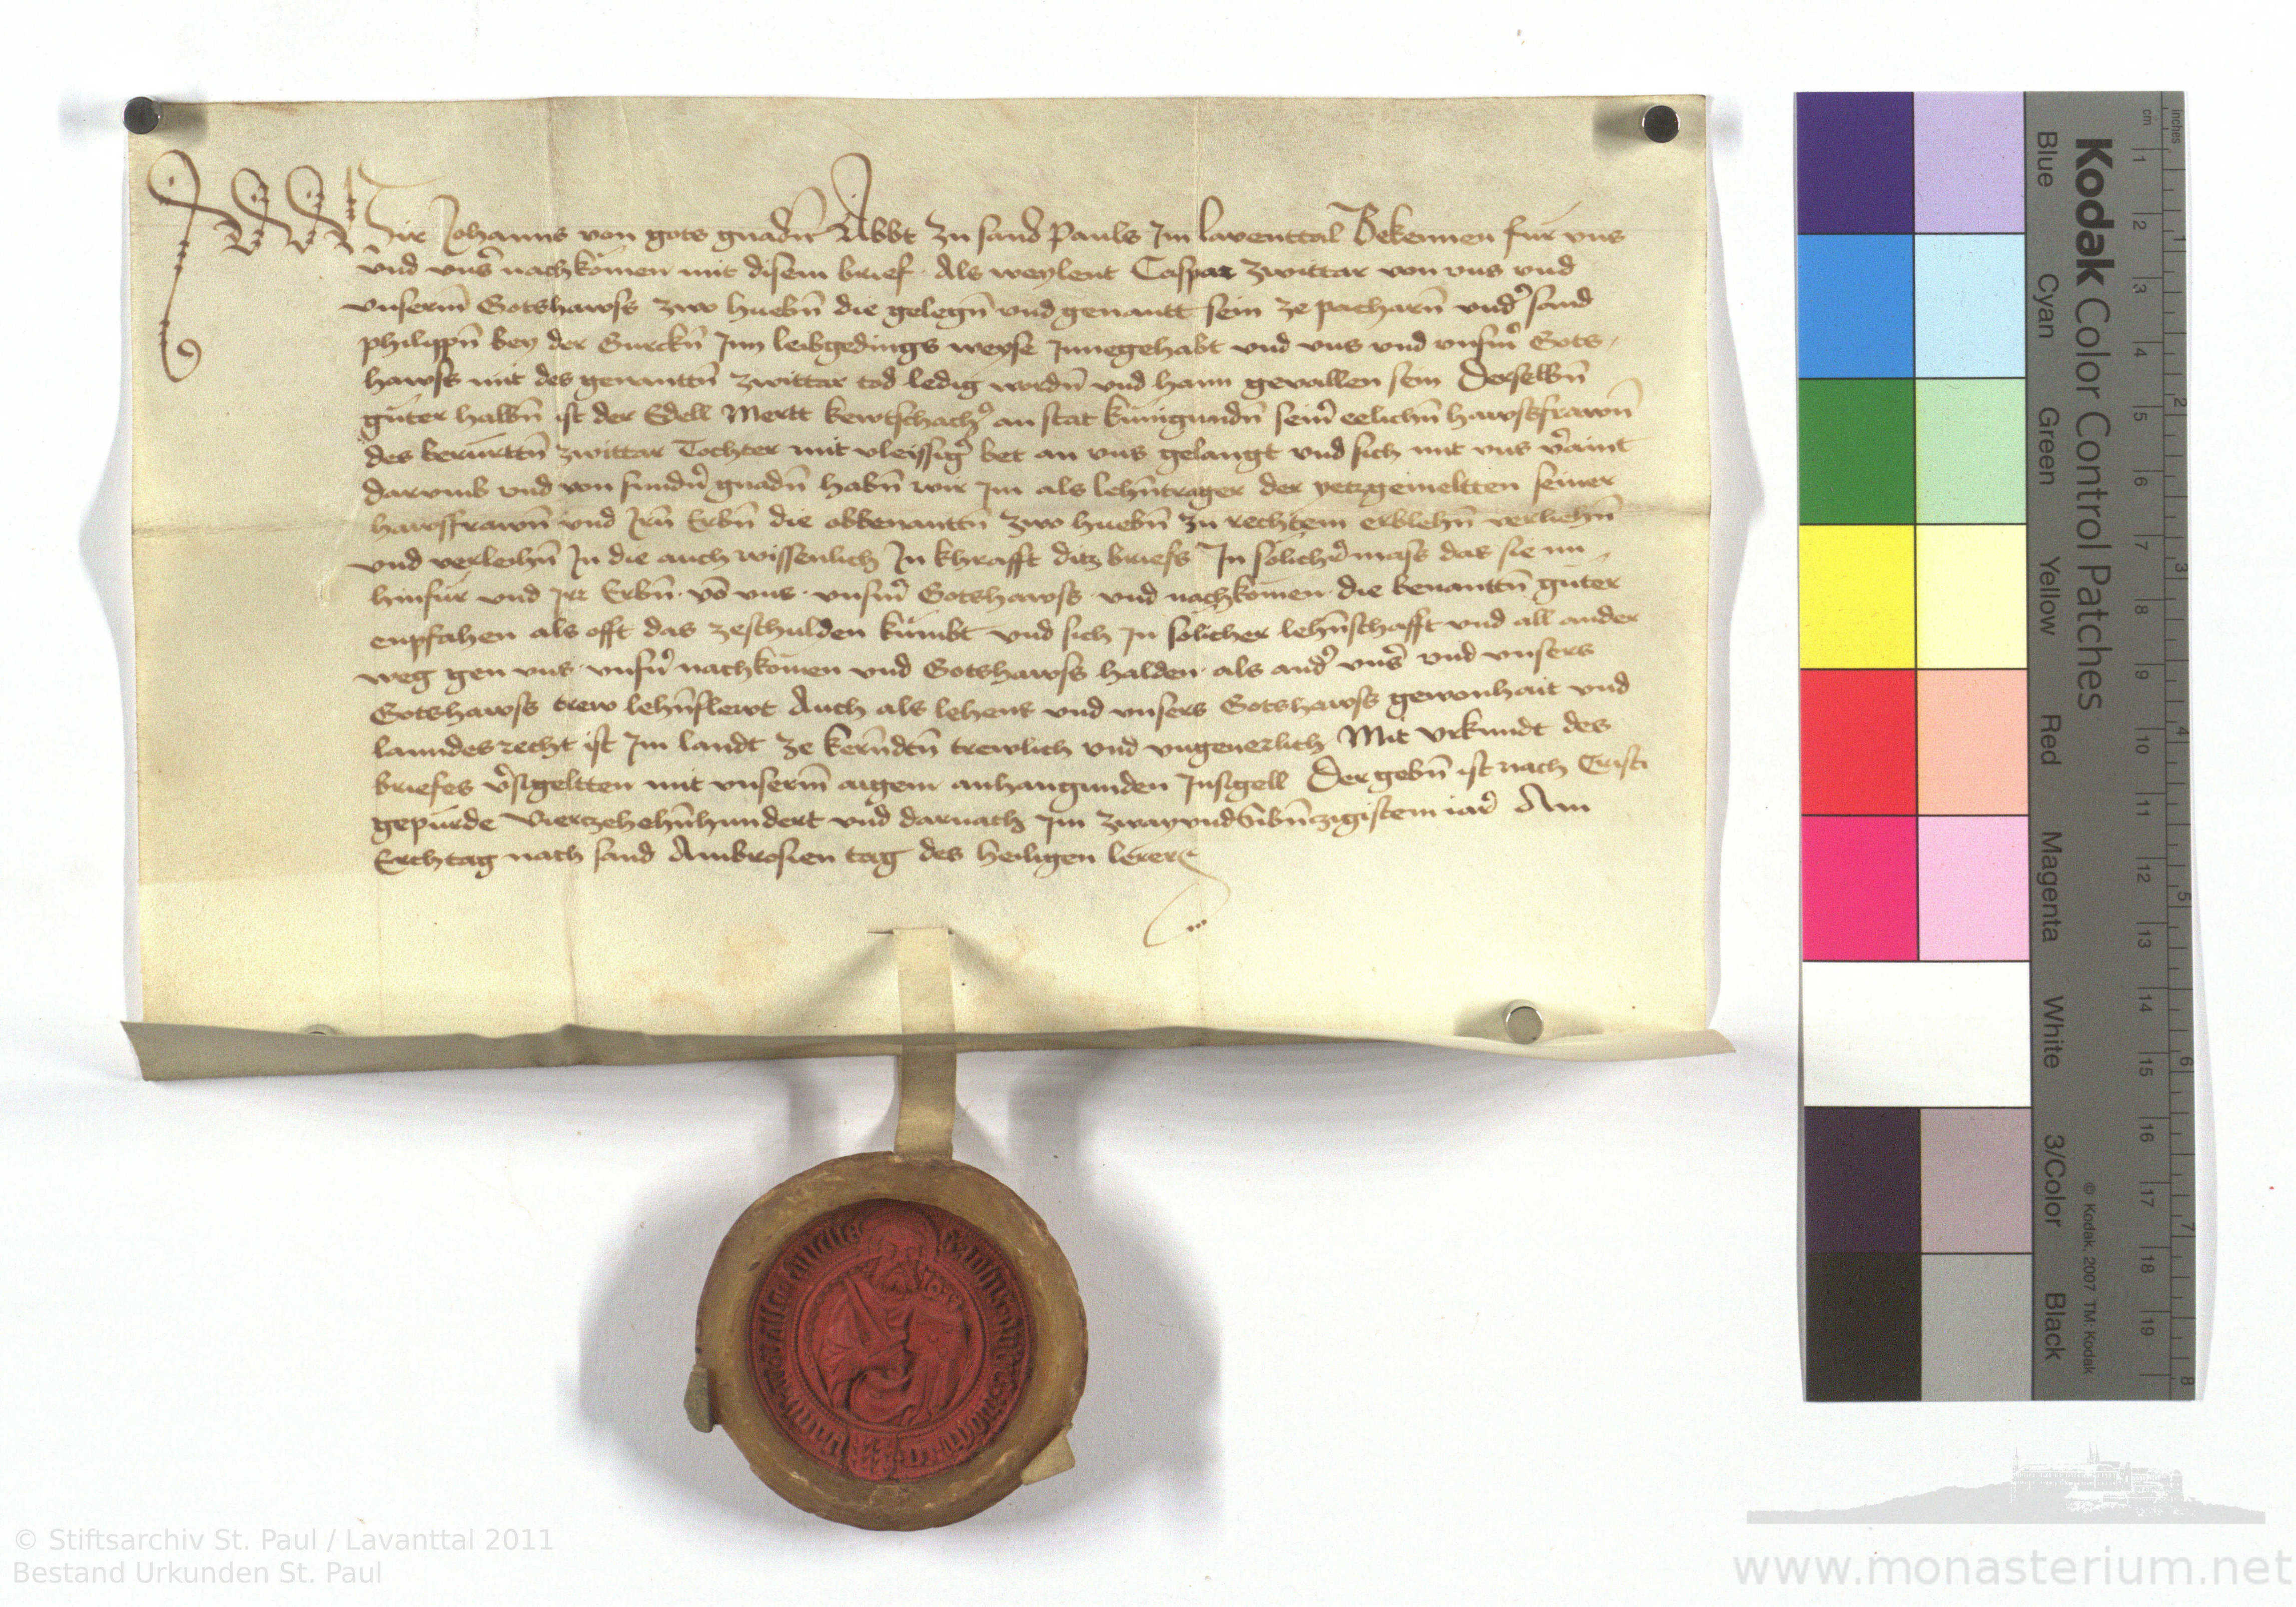 Wir Johanns von gots gnadn̄ Abbt zu sand Pauls Im laventtal Bekennen für vns
vnd vnser nachkomen mit disem brief · Als weylent Caspar Zwittar von vns vnd
vnserm̄ Gotshawss zwo huebn̄ die gelegn̄ vnd genantt sein ze pacharn̄ vnder sand
philippn̄ bey der Gurckn̄ Inn leibgedings weyse Innegehabt vnd vns vnd vnsm̄ Gots-
hawss mit des genanttn̄ Zwittar tod ledig wordn̄ vnd haim gevallen sein Derselbn̄
güter halbn̄ ist der Edell Mertt kewtschacher an stat kunigundn̄ seiner eelichn̄ hawssfrawn̄
des berürttn̄ Zwittar Tochter mit vleissiger bet an vns gelangt vnd sich mit vns veraint
darumb vnd von sundn̄ gnadn̄ habn̄ wir Im als lehn̄trager der yetzgemeltten seiner
hawsfrawn̄ vnd Irn̄ Erbn̄ die obbenanttn̄ zwo huebn̄ zu rechtem erblehn̄ verliehn̄
vnd verleihn̄ In die auch wissenlich In khrafft ditz briefs In solicher mass das sie nu
hinfür vnd Ir Erbn̄ · vō vns · vnsm̄ Gotshawss · vnd nachkomen · die benanttn̄ güter
enpfahen als offt das zeschulden kumbt vnd sich In solicher lehn̄schafft vnd all ander
weg gen vns · vnsn̄ nachkomen vnd Gotshawss halden · als ander vnser vnd vnsers
Gotshawss trew lehn̄slewt Auch als lehens vnd vnsers Gotshawss gewonhait vnd
lanndesrecht ist Im landt ze kern̄dtn̄ trewlich vnd vngeuerlich Mit vrkundt des
briefes versigeltten mit vnserm̄ aigem anhangunden Insigell Der gebn̄ ist nach Cristi
gepurde Vierzehehn̄hundert vnd darnach Im zwayvndSibn̄zigistem iare Am
Erchtag nach sand Ambrosien tag des heiligen lerers
Kodak Color Control Patches
© Kodak, 2007 TM: Kodak
inches
cm
1 2 3 4 5 6 7 8 9 10 11 12 13 14 15 16 17 18 19
1 2 3 4 5 6 7 8
Blue Cyan Green Yellow Red Magenta White 3/Color Black
© Stiftsarchiv St. Paul / Lavanttal 2011
Bestand Urkunden St. Paul
www.monasterium.net